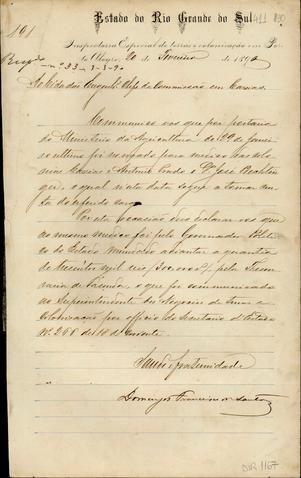 191
Estado do Rio Grande do Sul
Inspectoria Especial de terras e colonização em Por-
to Alegre, 20 de Fevereiro de 1890
Ao Cidadão Engenheiro Chefe da Commissão em Caxias.
Communico-vos que por portaria
do Ministerio da Agricultura de 29 de Janeiro
ultimo foi nomeado para medico nas colo-
nias Caxias e Antonio Prado o Dr José
o qual n'esta data segue a tomar con-
ta do referido cargo.
N'esta occasião declarar-vos que
ao mesmo medico foi pelo Governador
do Estado mandado abonar a quantia
de trezentos mil reis (300.000), pela Thesou-
raria de Fazenda, o que foi communicado
ao Superintendente dos Negocios de terras e
colonisação por officio do Secretario d'Estado
Nº 266 de 18 do corrente.
Saude e fraternidade
Domingos Francisco dos Santos
DVR 1167